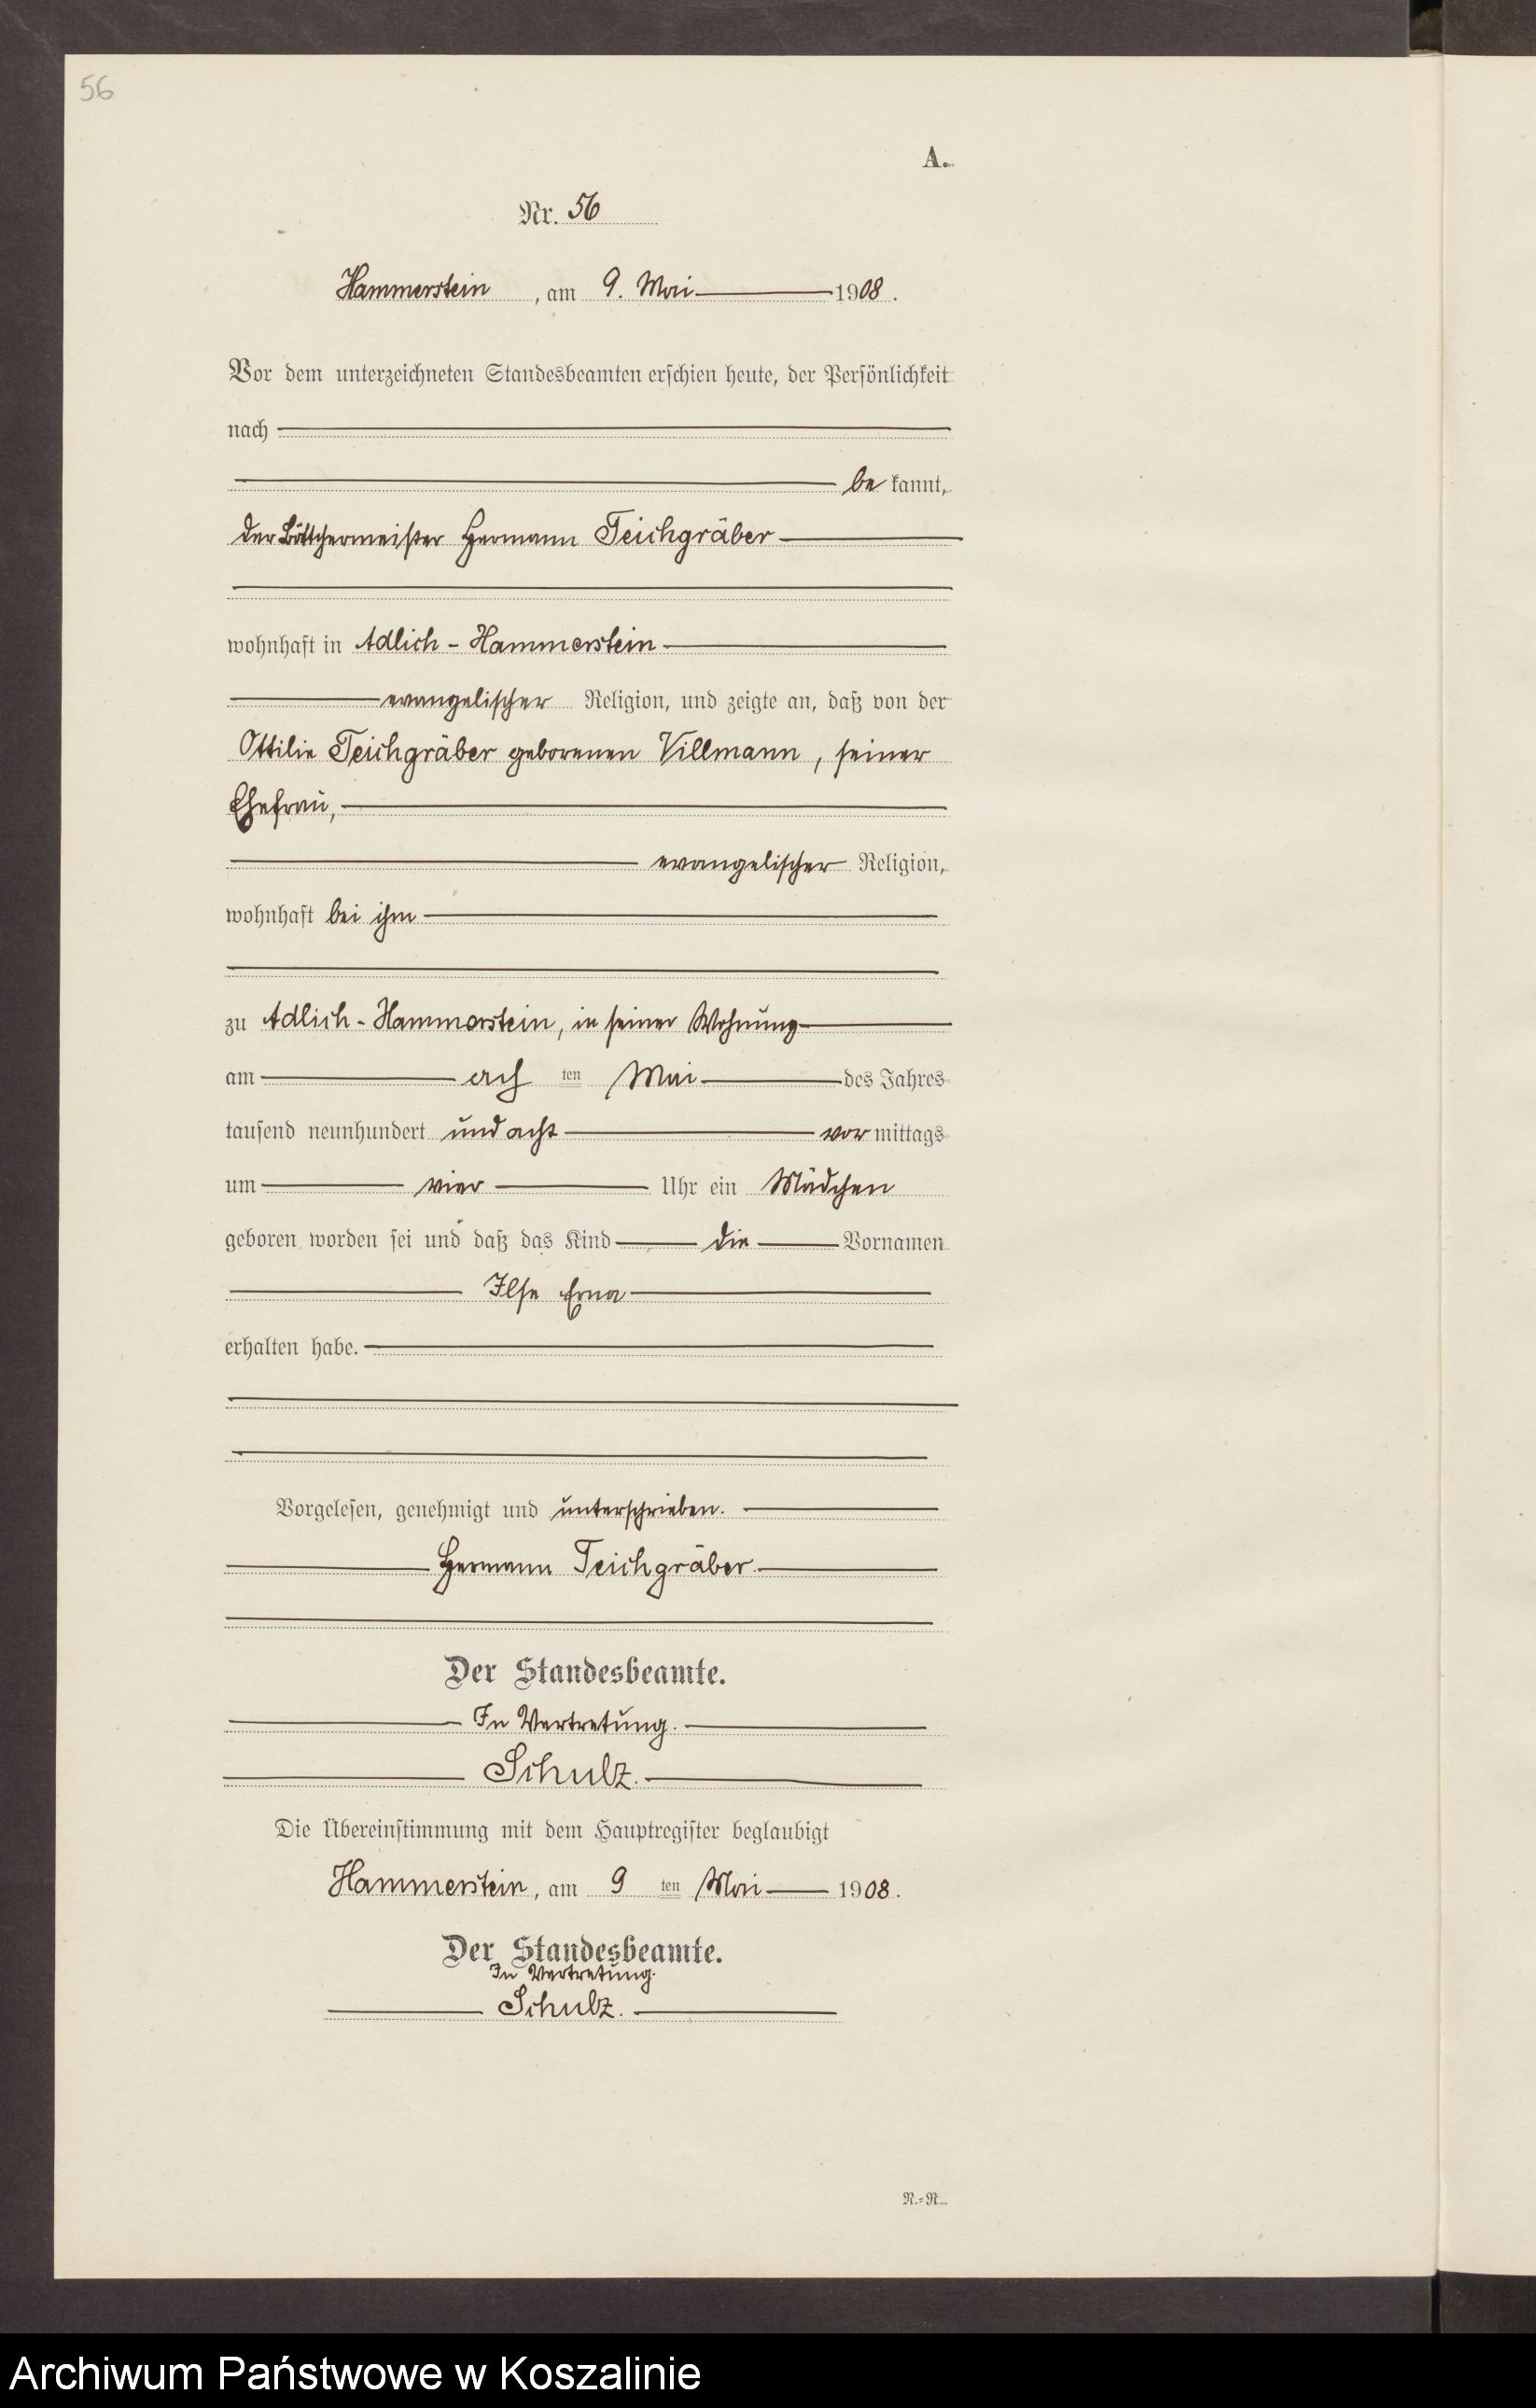 56
A.
Nr. 56
Hammerstein, am 9. Mai 1908.
Vor dem unterzeichneten Standesbeamten erschien heute, der Persönlichkeit
nach
be kannt,
der Böttchermeister Hermann Teichgräber
wohnhaft in Adlich - Hammerstein
evangelischer Religion, und zeigte an, daß von der
Ottilie Teichgräber geborenen Villmann, seiner
Ehefrau,
evangelischer Religion,
wohnhaft bei ihm
zu Adlich - Hammerstein, in seiner Wohnung
am ach ten Mai des Jahres
tausend neunhundert und acht vor mittags
um vier Uhr ein Mädchen
geboren worden sei und daß das Kind die Vornamen
Ilse Erna
erhalten habe.
Vorgelesen, genehmigt und unterschrieben.
Hermann Teichgräber.
Der Standesbeamte.
In Vertretung.
Schulz.
Die Übereinstimmung mit dem Hauptregister beglaubigt
Hammerstein, am 9 ten Mai 1908.
Der Standesbeamte.
In Vertretung.
Schulz.
N.=R.
Archiwum Państwowe w Koszalinie